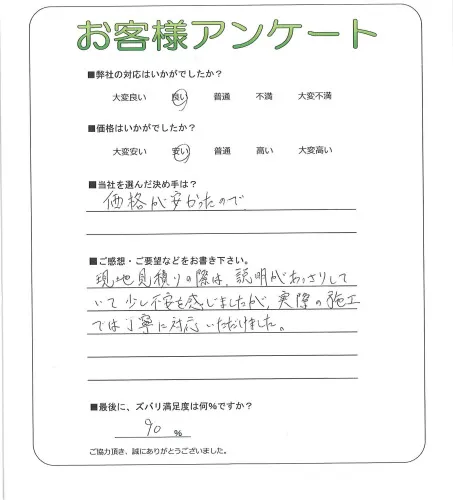 お客様アンケート
■弊社の対応はいかがでしたか？
大変良い 良い 普通 不満 大変不満
■価格はいかがでしたか？
大変安い 安い 普通 高い 大変高い
■当社を選んだ決め手は？
価格が安かったので
■ご感想・ご要望などをお書き下さい。
現地見積りの際は、説明があっさりして
いて少し不安を感じましたが、実際の施工
では丁寧に対応いただけました。
■最後に、ズバリ満足度は何％ですか？
90 ％
ご協力頂き、誠にありがとうございました。